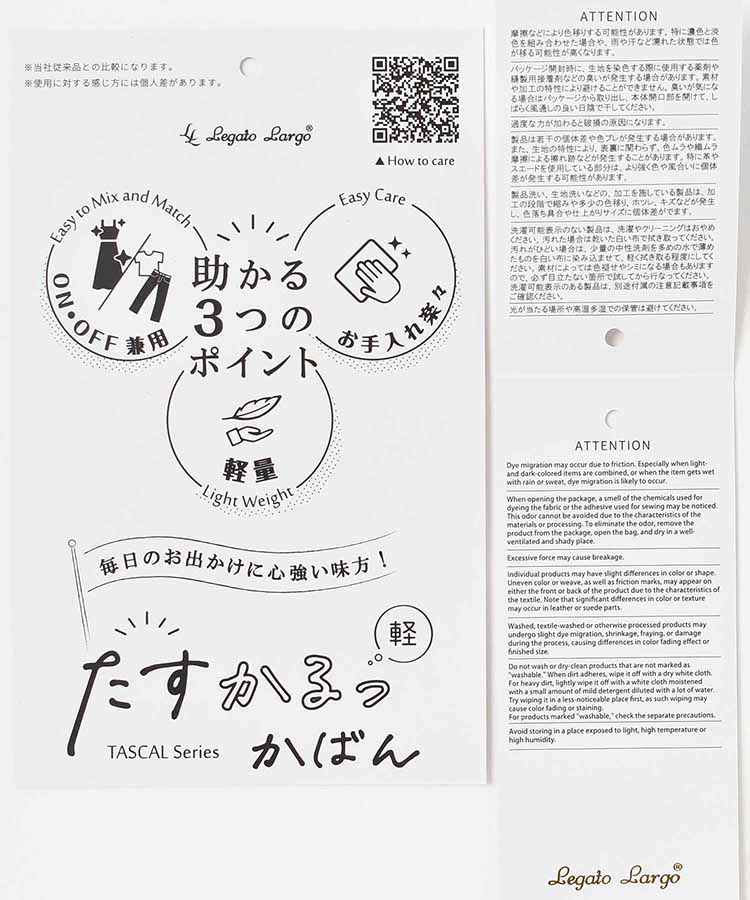 ※当社従来品との比較になります。
※使用に対する感じ方には個人差があります。
Legato Largo®
▲ How to care
Easy to Mix and Match
ON・OFF 兼用
Easy Care
お手入れ楽々
助かる
3つの
ポイント
軽量
Light Weight
毎日のお出かけに心強い味方！
軽
たすかるっ
TASCAL Series
かばん
ATTENTION
摩擦などにより色移りする可能性があります。特に濃色と淡
色を組み合わせた場合や、雨や汗など濡れた状態では色
が移る可能性が高くなります。
パッケージ開封時に、生地を染色する際に使用する薬剤や
縫製用接着剤などの臭いが発生する場合があります。素材
や加工の特性により避けることができません。臭いが気にな
る場合はパッケージから取り出し、本体開口部を開けて、し
ばらく風通しの良い日陰で干してください。
過度な力が加わると破損の原因になります。
製品は若干の個体差や色ブレが発生する場合があります。
また、生地の特性により、表裏に関わらず、色ムラや織ムラ
摩擦による擦れ跡などが発生することがあります。特に革や
スエードを使用している部分は、より強く色や風合いに個体
差が発生する可能性があります。
製品洗い、生地洗いなどの、加工を施している製品は、加
工の段階で縮みや多少の色移り、ホツレ、キズなどが発生
し、色落ち具合や仕上がりサイズに個体差がでます。
洗濯可能表示のない製品は、洗濯やクリーニングはおやめ
ください。汚れた場合は乾いた白い布で拭き取ってください。
汚れがひどい場合は、少量の中性洗剤を多めの水で薄め
たものを白い布に染み込ませて、軽く拭き取る程度にしてく
ださい。素材によっては色褪せやシミになる場合もあります
ので、必ず目立たない箇所で試してから行なってください。
洗濯可能表示のある製品は、別途付属の注意記載事項を
ご確認ください。
光が当たる場所や高温多湿での保管は避けてください。
ATTENTION
Dye migration may occur due to friction. Especially when light-
and dark-colored items are combined, or when the item gets wet
with rain or sweat, dye migration is likely to occur.
When opening the package, a smell of the chemicals used for
dyeing the fabric or the adhesive used for sewing may be noticed.
This odor cannot be avoided due to the characteristics of the
materials or processing. To eliminate the odor, remove the
product from the package, open the bag, and dry in a well-
ventilated and shady place.
Excessive force may cause breakage.
Individual products may have slight differences in color or shape.
Uneven color or weave, as well as friction marks, may appear on
either the front or back of the product due to the characteristics of
the textile. Note that significant differences in color or texture
may occur in leather or suede parts.
Washed, textile-washed or otherwise processed products may
undergo slight dye migration, shrinkage, fraying, or damage
during the process, causing differences in color fading effect or
finished size.
Do not wash or dry-clean products that are not marked as
"washable." When dirt adheres, wipe it off with a dry white cloth.
For heavy dirt, lightly wipe it off with a white cloth moistened
with a small amount of mild detergent diluted with a lot of water.
Try wiping it in a less-noticeable place first, as such wiping may
cause color fading or staining.
For products marked "washable," check the separate precautions.
Avoid storing in a place exposed to light, high temperature or
high humidity.
Legato Largo®